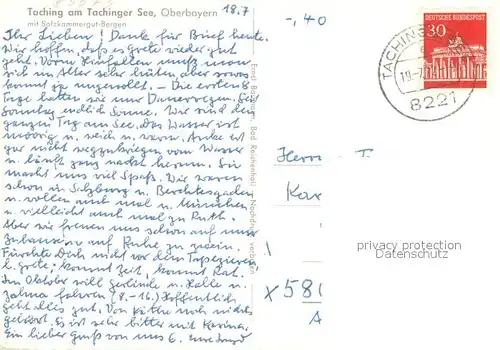 Taching am Tachinger See, Oberbayern
mit Salzkammergut-Bergen
18.7
-,40
Ihr Lieben! Dank für Brief heute.
Wir hoffen, daß es Grete wieder gut
geht. Vorm Hinfallen muß man
sich im Alter sehr hüten, aber sowas
kommt ja ungewollt. - Die ersten 8
Tage hatten wir nur Dauerregen. Seit
Sonntag endlich Sonne. Wir sind den
ganzen Tag am See. Das Wasser ist
moorig u. weich u. warm. Anke ist
gar nicht wegzukriegen vom Wasser
u. läuft ganz nackt herum. Sie
macht uns viel Spaß. Wir waren
schon in Salzburg u. Berchtesgaden
u. wollen auch mal n. München
u. vielleicht auch mal zu Ruth.
Aber wir freuen uns schon auf unser
Zuhause um auf Ruhe zu
Fürchte Dich nicht vor dem Tapezieren
l. Grete; kommt Zeit, kommt Rat.
Im Oktober will Gerlinde n. Halle u.
fahren (8.-16.) Hoffentlich
geht alles gut. Von Käthe noch nichts
gehört. Es ist sehr bitter mit Karina.
Ein lieber Gruß von uns 6. eure
DEUTSCHE BUNDESPOST
30
TACHING
19.-7.
8221
Herrn
T
Kar
x 58
A
privacy protection
Datenschutz